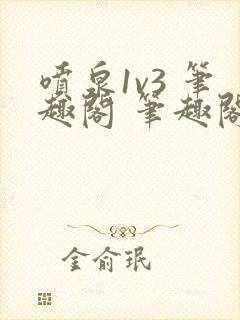 噴泉1v3 筆
趣閣 筆趣閣
金俞珉